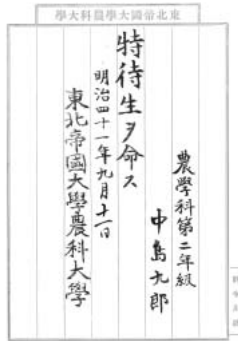 東北帝國大學農科大學
農學科第二年級
中島九郎
特待生ヲ命ス
明治四十一年九月十一日
東北帝國大學農科大學